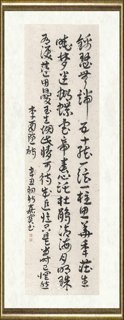 錦瑟無端五十弦一弦一柱思華年莊生
曉夢迷蝴蝶望帝春心託杜鵑滄海月明珠
有淚藍田日暖玉生煙此情可待成追憶只是當時已惘然
李商隱詩